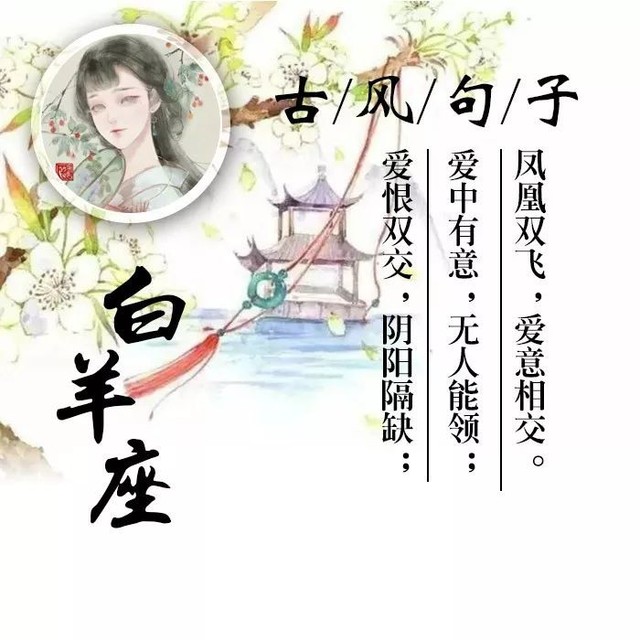 古/风/句/子
爱恨双交，阴阳隔缺；
爱中有意，无人能领；
凤凰双飞，爱意相交。
白羊座